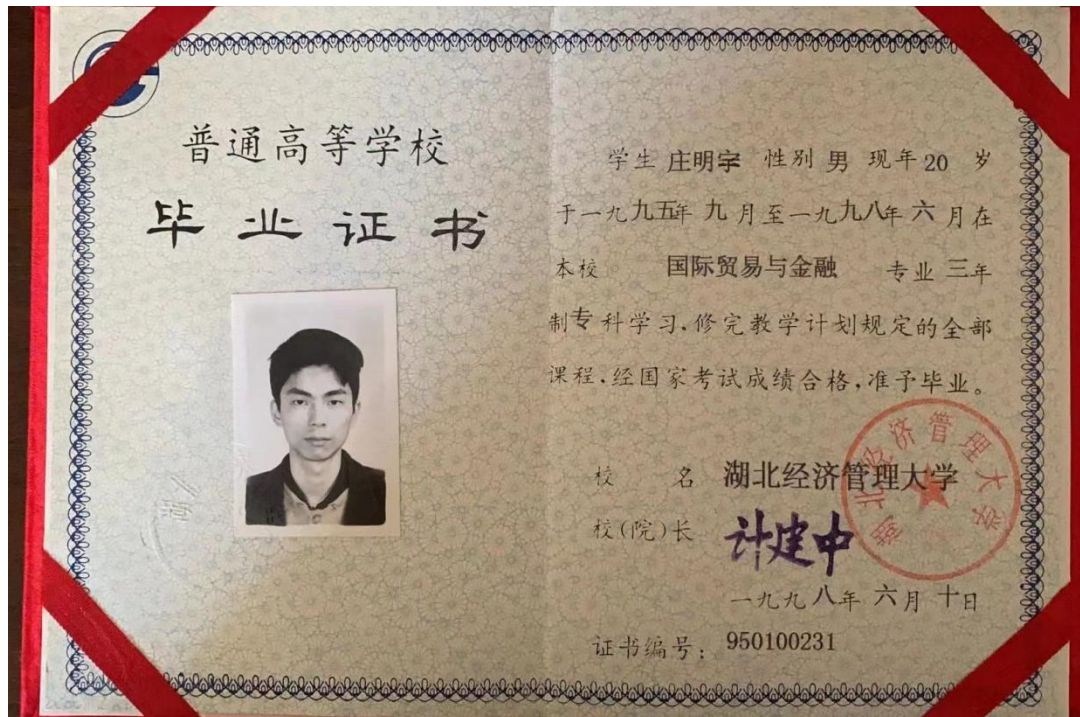 普通高等学校
毕业证书
学生 庄明宇 性别 男 现年 20 岁
于一九九五年 九 月至一九九八年 六 月在
本校 国际贸易与金融 专业 三年
制专科学习,修完教学计划规定的全部
课程,经国家考试成绩合格,准予毕业。
校 名 湖北经济管理大学
校(院)长 计建中
湖北经济管理大学
一九九八年 六月 十日
证书编号: 950100231